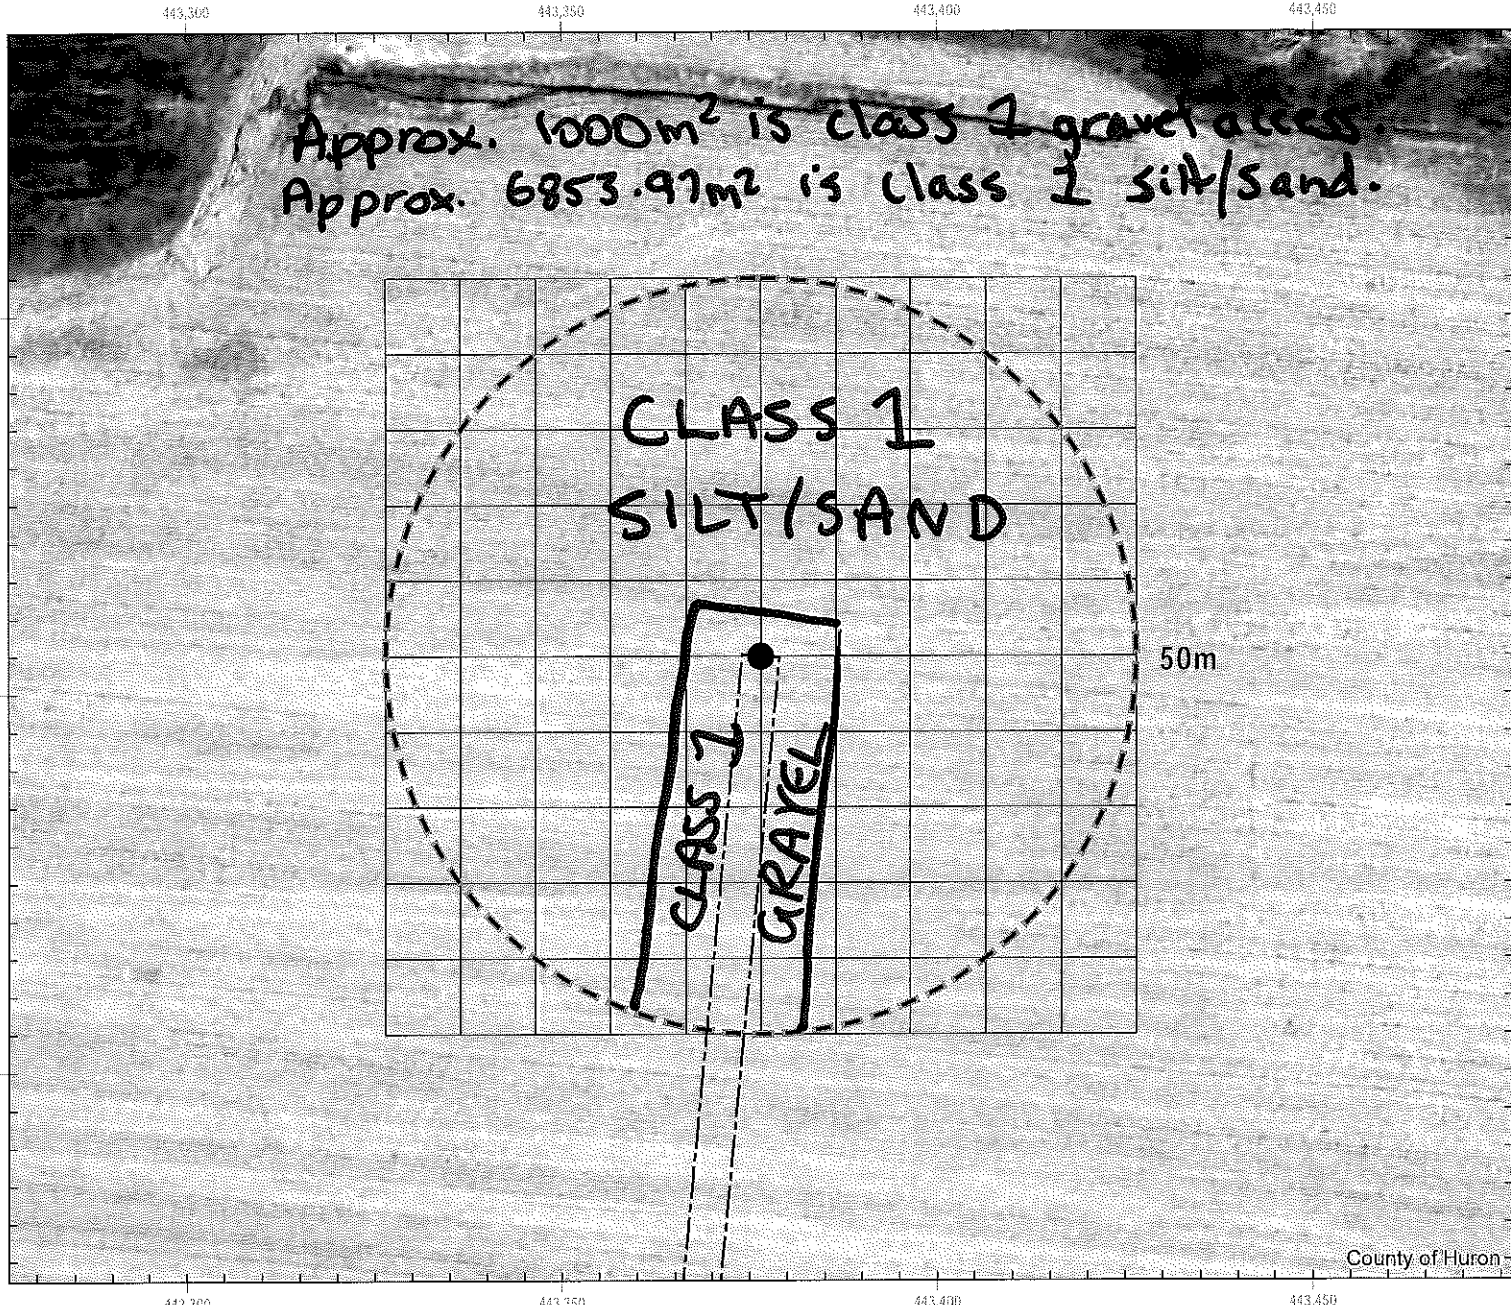 443,300 443,350 443,400 443,450
Approx. 1000m² is class 1 gravel access.
Approx. 6853.97m² is class 1 silt/sand.
CLASS 1
SILT/SAND
50m
CLASS 1
GRAVEL
County of Huron
443,300 443,350 443,400 443,450